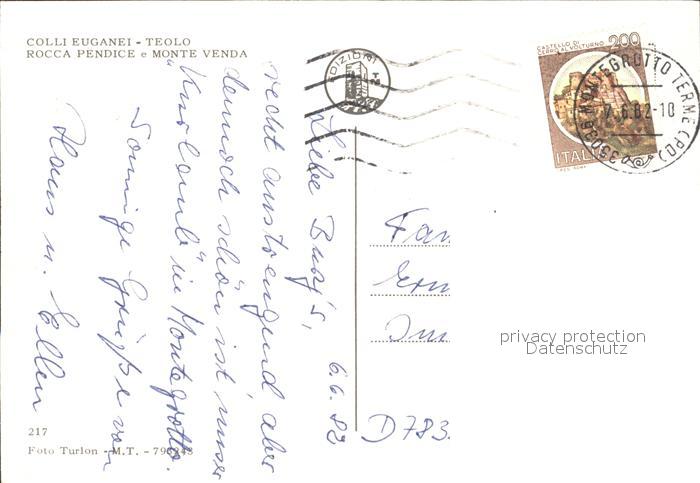 COLLI EUGANEI - TEOLO
ROCCA PENDICE e MONTE VENDA
EDIZIONI
CASTELLO DI
CERRO AL VOLTURNO
200
ITALIA
35036 MONTEGROTTO TERME (PD)
7.6.82-10
Liebe
6.6.82
recht anstrengend, aber
dennoch schön ist unser
"Kurlaub" in Montegrotto.
Sonnige Grüße von
Hans u. Ellen
Fam
D 783
privacy protection
Datenschutz
217
Foto Turlon - M.T. - 795243